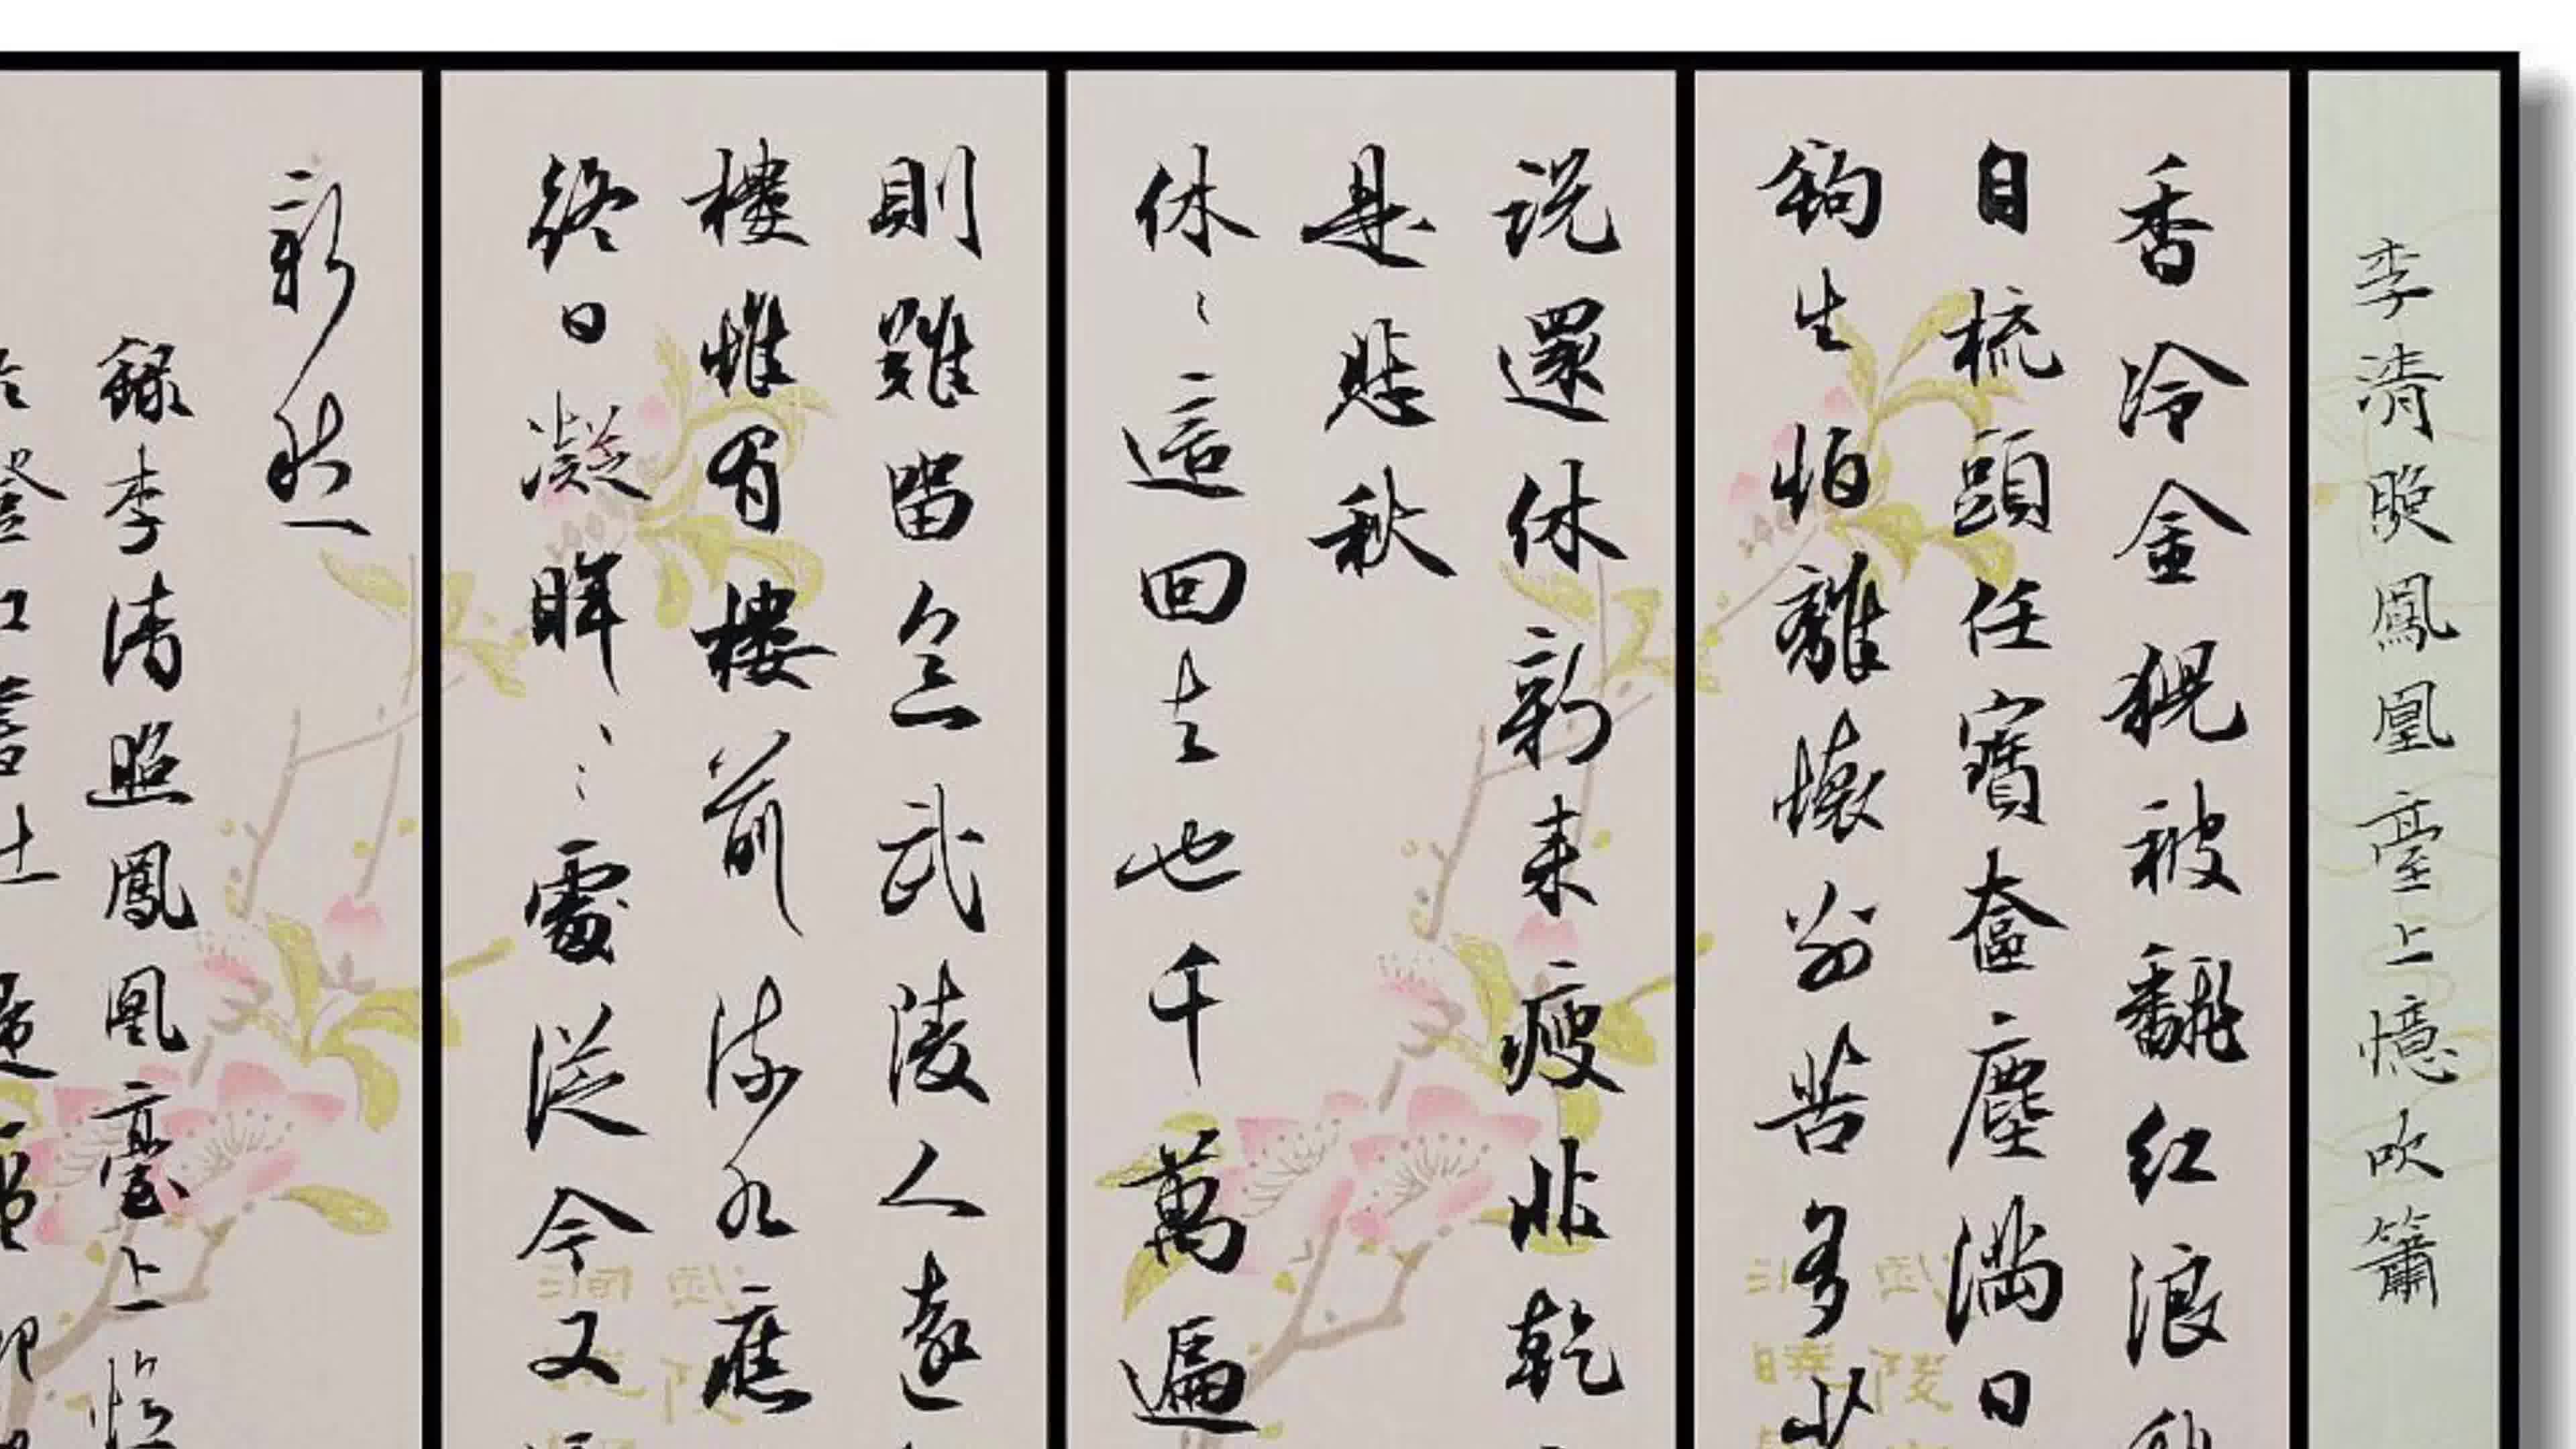 李清照鳳凰臺上憶吹簫
香冷金猊被翻红浪
自梳頭任寶奩塵滿日
鉤生怕離懷別苦多少
说還休新来瘦非乾
是悲秋
休〻這回去也千萬遍
則難留念武陵人遠
樓惟有樓前流水應
終日凝眸〻〻處從今又
新愁
錄李清照鳳凰臺上憶